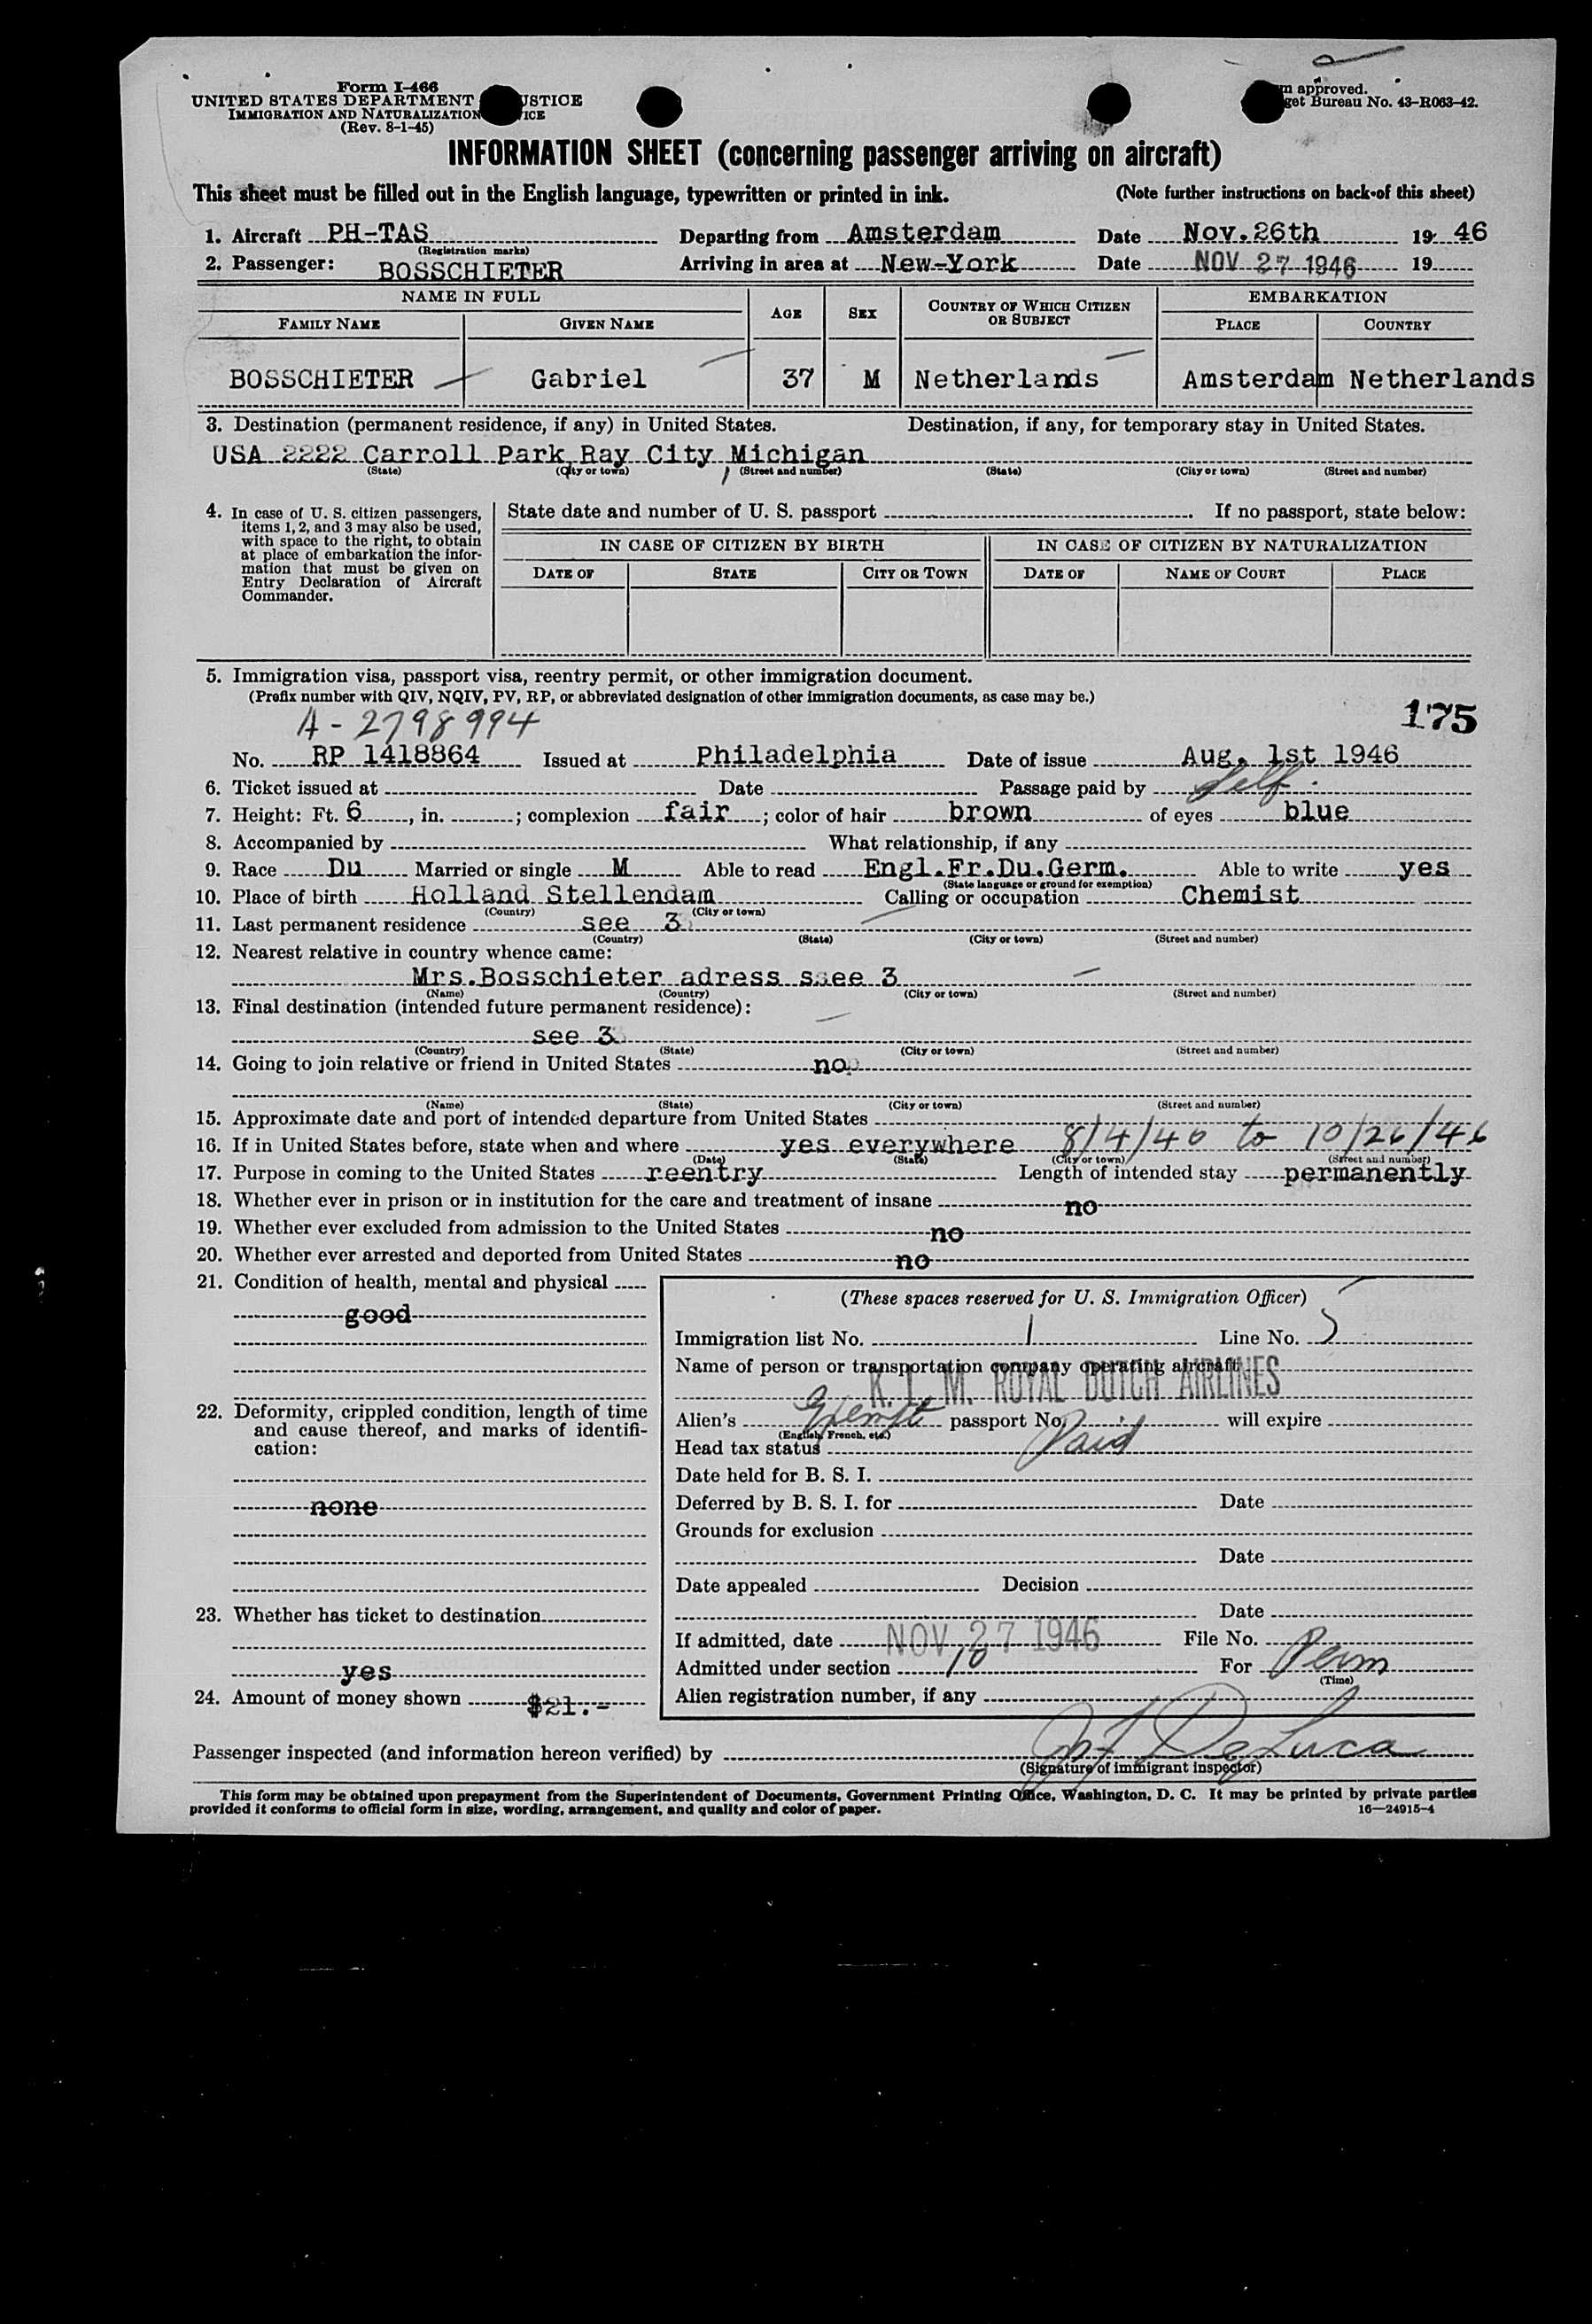 Form I-466
UNITED STATES DEPARTMENT USTICE
IMMIGRATION AND NATURALIZATION ICE
(Rev. 8-1-45)
m approved.
get Bureau No. 43-R063-42.
INFORMATION SHEET (concerning passenger arriving on aircraft)
This sheet must be filled out in the English language, typewritten or printed in ink. (Note further instructions on back of this sheet)
1. Aircraft PH-TAS Departing from Amsterdam Date Nov.26th 19 46
(Registration marks)
2. Passenger: BOSSCHIETER Arriving in area at New-York Date NOV 27 1946 19
NAME IN FULL AGE SEX COUNTRY OF WHICH CITIZEN OR SUBJECT EMBARKATION
FAMILY NAME GIVEN NAME PLACE COUNTRY
BOSSCHIETER Gabriel 37 M Netherlands Amsterdam Netherlands
3. Destination (permanent residence, if any) in United States. Destination, if any, for temporary stay in United States.
USA 2222 Carroll Park Ray City, Michigan
(State) (City or town) (Street and number) (State) (City or town) (Street and number)
4. In case of U. S. citizen passengers, items 1, 2, and 3 may also be used, with space to the right, to obtain at place of embarkation the information that must be given on Entry Declaration of Aircraft Commander.
State date and number of U. S. passport If no passport, state below:
IN CASE OF CITIZEN BY BIRTH IN CASE OF CITIZEN BY NATURALIZATION
DATE OF STATE CITY OR TOWN DATE OF NAME OF COURT PLACE
5. Immigration visa, passport visa, reentry permit, or other immigration document.
(Prefix number with QIV, NQIV, PV, RP, or abbreviated designation of other immigration documents, as case may be.)
A-2798994 175
No. RP 1418864 Issued at Philadelphia Date of issue Aug. 1st 1946
6. Ticket issued at Date Passage paid by Self
7. Height: Ft. 6, in. ; complexion fair; color of hair brown of eyes blue
8. Accompanied by What relationship, if any
9. Race Du Married or single M Able to read Engl.Fr.Du.Germ. Able to write yes
(State language or ground for exemption)
10. Place of birth Holland Stellendam Calling or occupation Chemist
(Country) (City or town)
11. Last permanent residence see 3
(Country) (State) (City or town) (Street and number)
12. Nearest relative in country whence came:
Mrs.Bosschieter adress ssee 3
(Name) (Country) (City or town) (Street and number)
13. Final destination (intended future permanent residence):
see 3
(Country) (State) (City or town) (Street and number)
14. Going to join relative or friend in United States no
(Name) (State) (City or town) (Street and number)
15. Approximate date and port of intended departure from United States
16. If in United States before, state when and where yes everywhere 8/4/40 to 10/26/46
(Date) (State) (City or town) (Street and number)
17. Purpose in coming to the United States reentry Length of intended stay permanently
18. Whether ever in prison or in institution for the care and treatment of insane no
19. Whether ever excluded from admission to the United States no
20. Whether ever arrested and deported from United States no
21. Condition of health, mental and physical
good
22. Deformity, crippled condition, length of time and cause thereof, and marks of identification:
none
23. Whether has ticket to destination
yes
24. Amount of money shown $21.-
(These spaces reserved for U. S. Immigration Officer)
Immigration list No. 1 Line No.
Name of person or transportation company operating aircraft
K. L. M. ROYAL DUTCH AIRLINES
Alien's Exempt passport No. will expire
(English, French, etc.)
Head tax status Paid
Date held for B. S. I.
Deferred by B. S. I. for Date
Grounds for exclusion
Date
Date appealed Decision
Date
If admitted, date NOV 27 1946 File No.
Admitted under section 10 For Perm
(Time)
Alien registration number, if any
Passenger inspected (and information hereon verified) by DeLuca
(Signature of immigrant inspector)
This form may be obtained upon prepayment from the Superintendent of Documents, Government Printing Office, Washington, D. C. It may be printed by private parties
provided it conforms to official form in size, wording, arrangement, and quality and color of paper. 16—24915-4